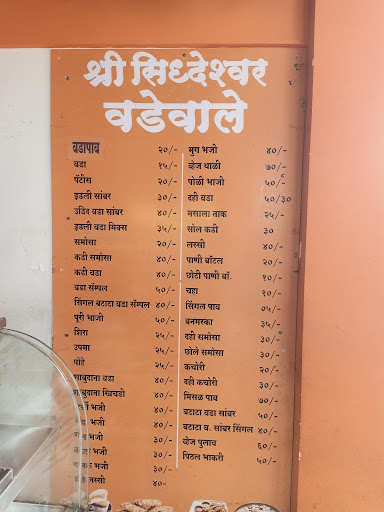 श्री सिध्देश्वर
वडेवाले
वडापाव २०/-
वडा १५/-
पॅटीस २०/-
इडली सांबर ३०/-
उडिद वडा सांबर ४०/-
इडली वडा मिक्स ३५/-
समोसा २०/-
कढी समोसा ४०/-
कढी वडा ४०/-
वडा सॅम्पल ५०/-
सिंगल बटाटा वडा सॅम्पल ४०/-
पूरी भाजी ५०/-
शिरा २५/-
उपमा २५/-
पोहे २५/-
साबुदाना वडा ४०/-
साबुदाना खिचडी ४०/-
भजी ४०/-
भजी ४०/-
भजी ३०/-
भजी ३०/-
भजी ३०/-
लस्सी ४०-
मुग भजी ४०/-
व्हेज थाळी ७०/-
पोळी भाजी ५०/-
दही वडा ५०/३०
मसाला ताक २५/-
सोल कढी ३०
लस्सी ४०/-
पाणी बॉटल २०/-
छोटी पाणी बॉ. १०/-
चहा १०/-
सिंगल पाव ०५/-
बनमस्का ३५/-
दही समोसा ३०/-
छोले समोसा ३०/-
कचोरी २०/-
दही कचोरी ३०/-
मिसळ पाव ७०/-
बटाटा वडा सांबर ५०/-
बटाटा व. सांबर सिंगल ४०/-
व्हेज पुलाव ६०/-
पिठल भाकरी ५०/-